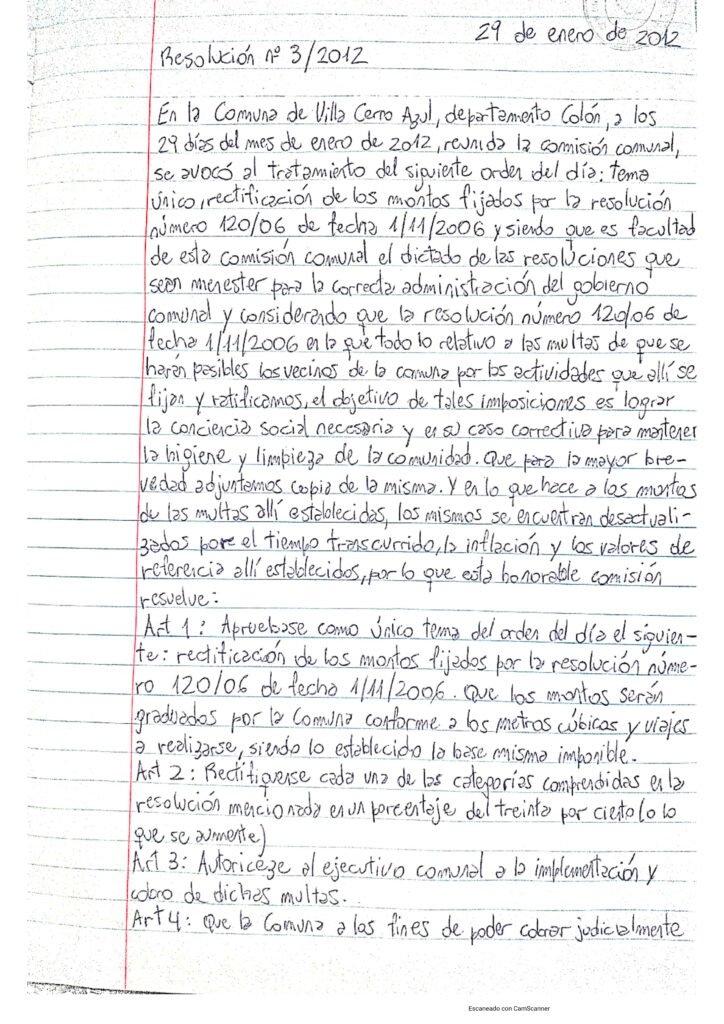 29 de enero de 2012
Resolución nº 3/2012
En la Comuna de Villa Cerro Azul, departamento Colón, a los
29 días del mes de enero de 2012, reunida la comisión comunal,
se avocó al tratamiento del siguiente orden del día: tema
único, rectificación de los montos fijados por la resolución
número 120/06 de fecha 1/11/2006 y siendo que es facultad
de esta comisión comunal el dictado de las resoluciones que
sean menester para la correcta administración del gobierno
comunal y considerando que la resolución número 120/06 de
fecha 1/11/2006 en la que todo lo relativo a las multas de que se
harán pasibles los vecinos de la comuna por las actividades que allí se
fijan y ratificamos, el objetivo de tales imposiciones es lograr
la conciencia social necesaria y en su caso correctiva para mantener
la higiene y limpieza de la comunidad. Que para la mayor bre-
vedad adjuntamos copia de la misma. Y en lo que hace a los montos
de las multas allí establecidas, los mismos se encuentran desactuali-
zados por el tiempo transcurrido, la inflación y los valores de
referencia allí establecidos, por lo que esta honorable comisión
resuelve:
Art 1: Apruebase como único tema del orden del día el siguien-
te: rectificación de los montos fijados por la resolución núme-
ro 120/06 de fecha 1/11/2006. Que los montos serán
graduados por la Comuna conforme a los metros cúbicos y viajes
a realizarse, siendo lo establecido la base misma imponible.
Art 2: Rectifiquense cada una de las categorías comprendidas en la
resolución mencionada en un porcentaje del treinta por ciento (o lo
que se aumente)
Art 3: Autoriceze al ejecutivo comunal a la implementación y
cobro de dichas multas.
Art 4: Que la Comuna a los fines de poder cobrar judicialmente
Escaneado con CamScanner